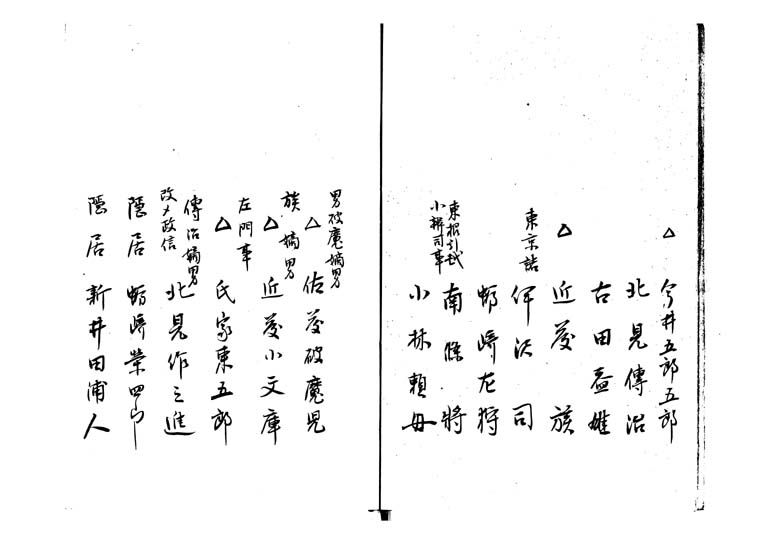 △ 今井五郎五郎
北見傳治
古田益雄
△ 近藤 族
東京詰 伊沢 司
蛎崎左狩
東招引越 南條 将
小林司事 小林頼母
男破魔嫡男 △ 佐藤破魔児
族 嫡男 △ 近藤小文庫
左門事 △ 氏家東五郎
傳治嫡男 改メ政信 北見作之進
隠居 蛎崎栄四郎
隠居 新井田浦人